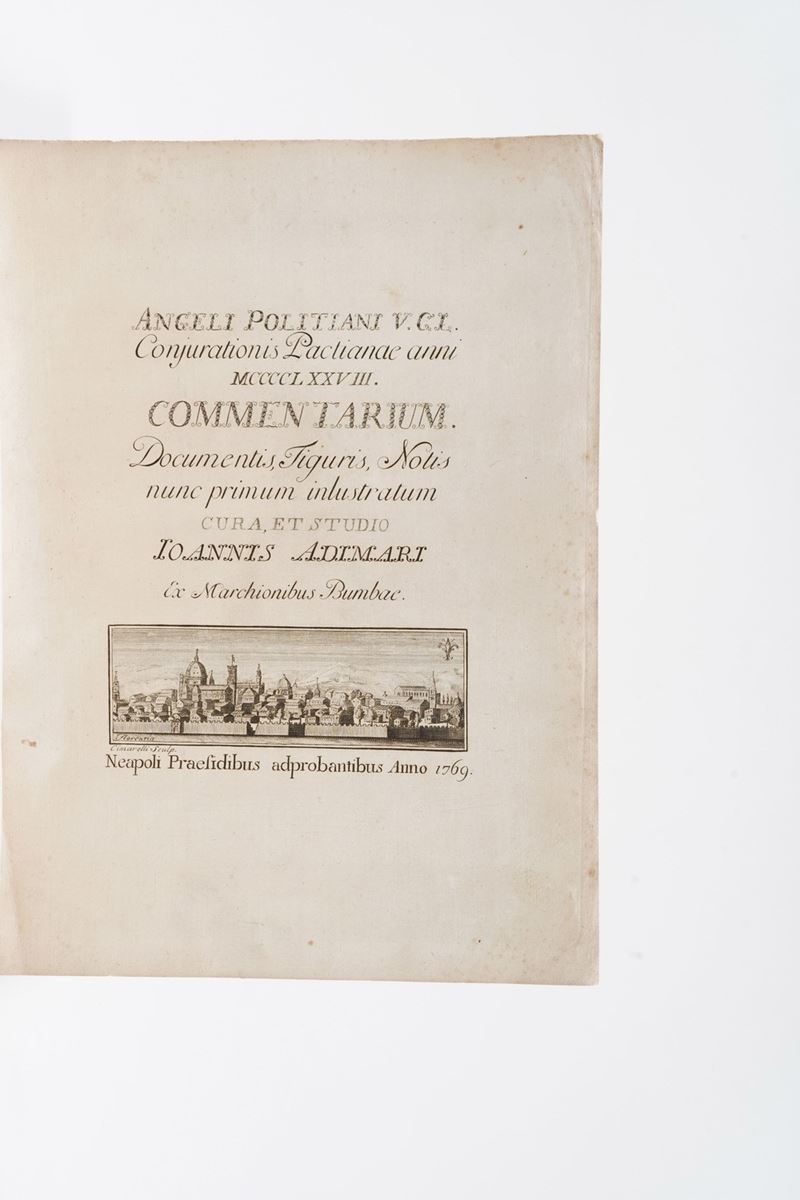 ANGELI POLITIANI V. CL.
Conjurationis Pactianae anni
MCCCCLXXVIII.
COMMENTARIUM.
Documentis, Figuris, Notis
nunc primum inlustratum
CURA, ET STUDIO
IOANNIS ADIMARI
Ex Marchionibus Bumbae.
Florentia
Cimarelli Sculp.
Neapoli Praeſidibus adprobantibus Anno 1769.